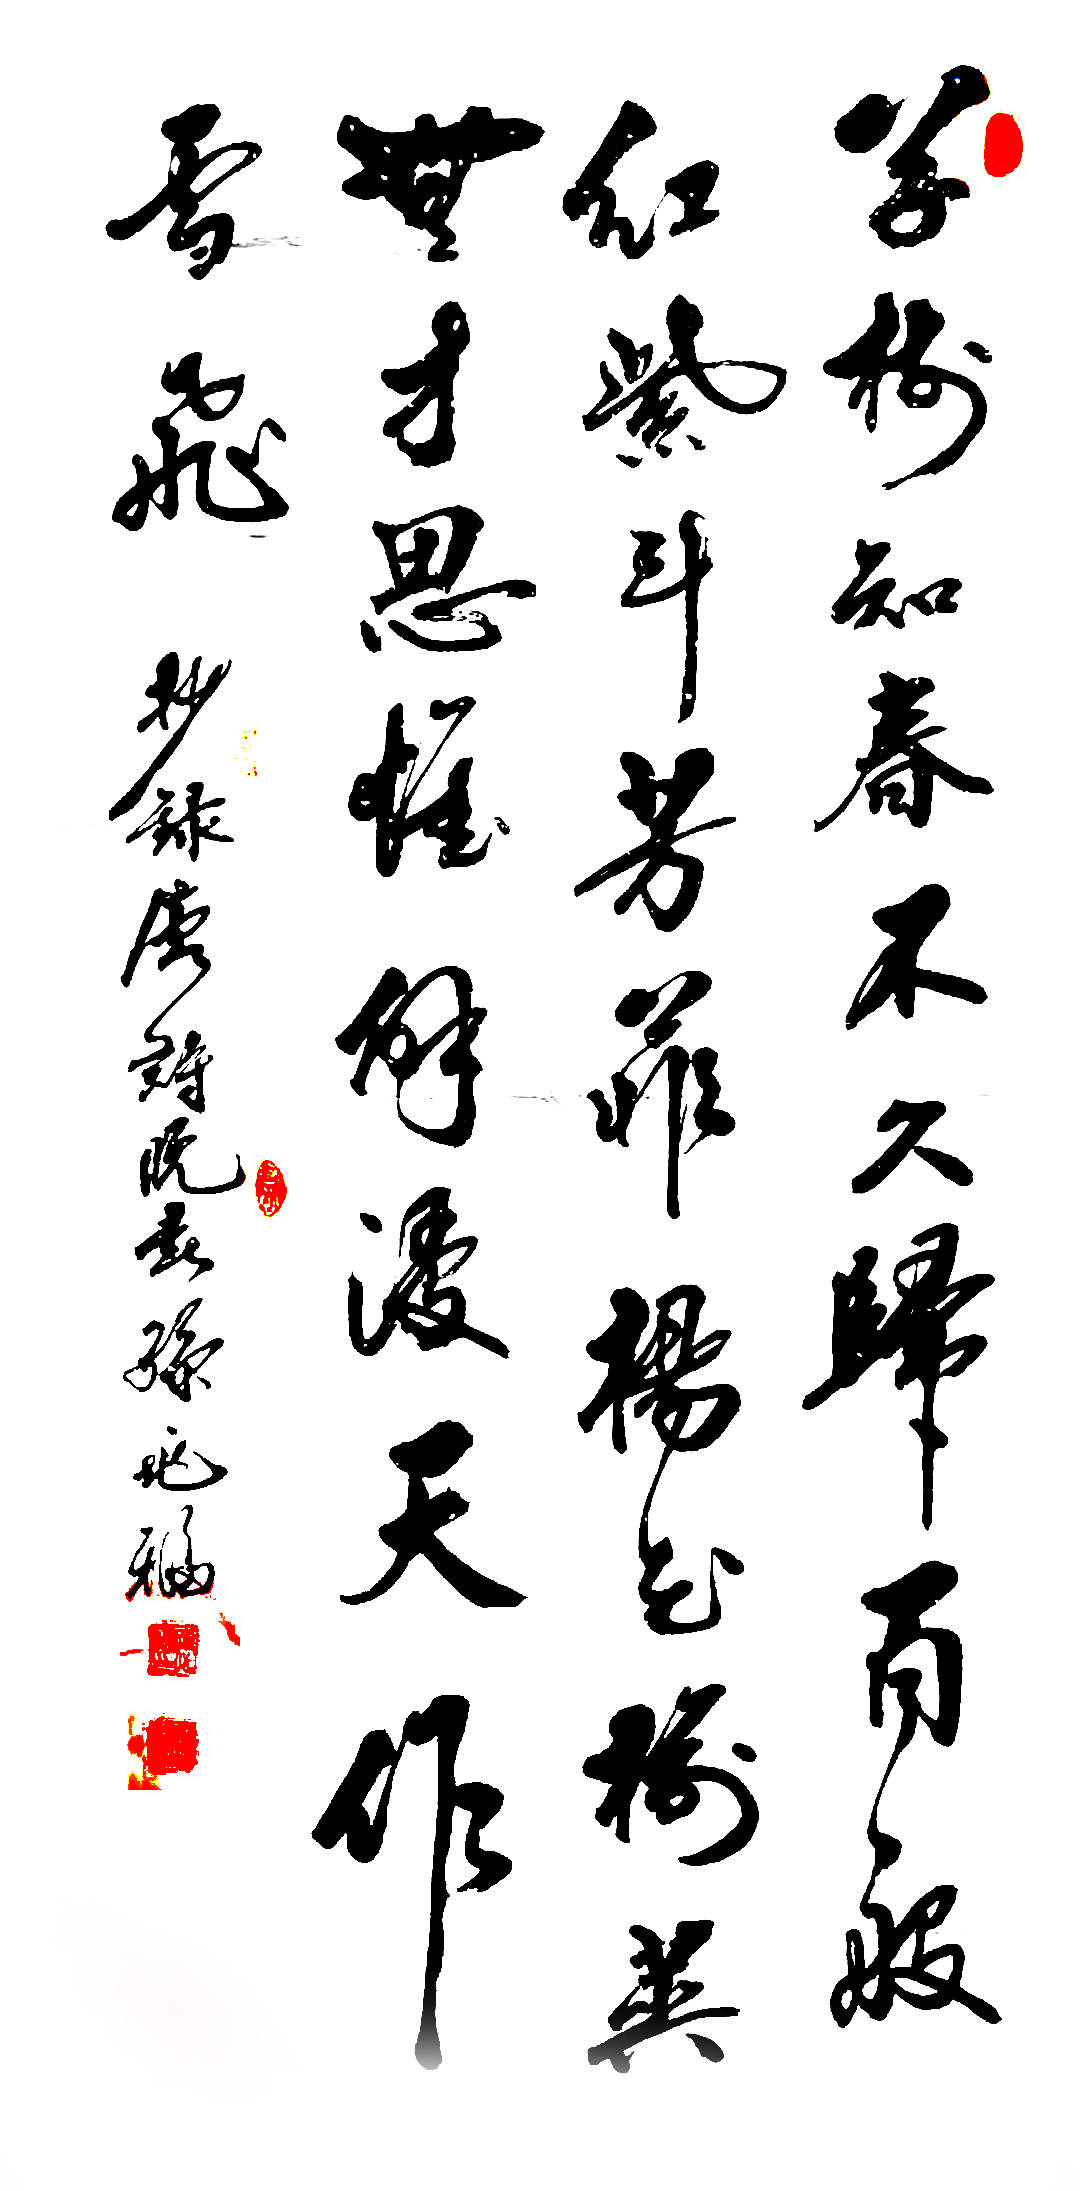 草樹知春不久歸百般
紅紫斗芳菲楊花榆莢
無才思惟解漫天作
雪飛
抄錄唐詩晚春孫兆福